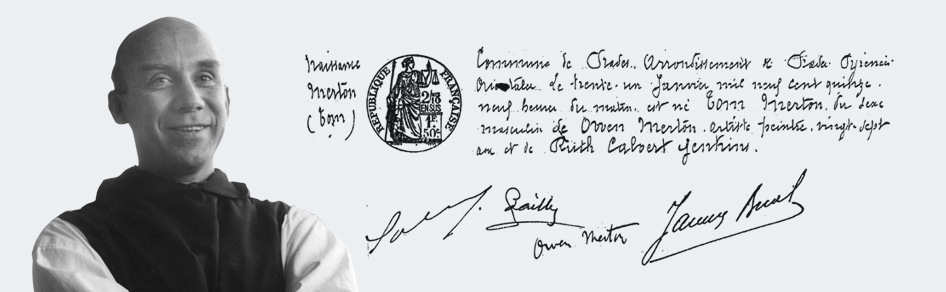 Naissance
Merton
(Tom)
RÉPUBLIQUE FRANÇAISE
2/10
EN SUS
1F.
50c
Commune de Prades. Arrondissement de Prades Pyrénées
Orientales. Le trente-un Janvier mil neuf cent quinze
neuf heures du matin est né Tom Merton, du sexe
masculin de Owen Merton. artiste peintre. vingt-sept
ans et de Ruth Calvert Jenkins.
Owen Merton